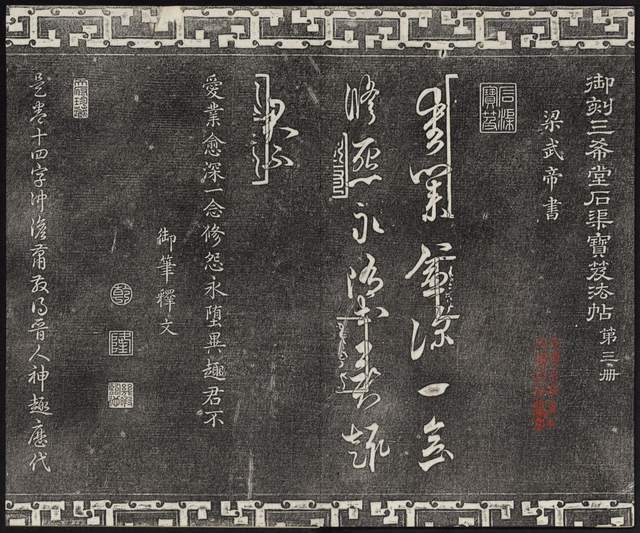 御刻三希堂石渠寶笈法帖 第三冊
梁武帝書
石渠寶笈
愛業愈深一念
修怨永墮異趣
君不
愛業愈深一念修怨永墮異趣君不
御筆釋文
是卷十四字沖澹蕭散得晉人神趣歷代
乾
隆